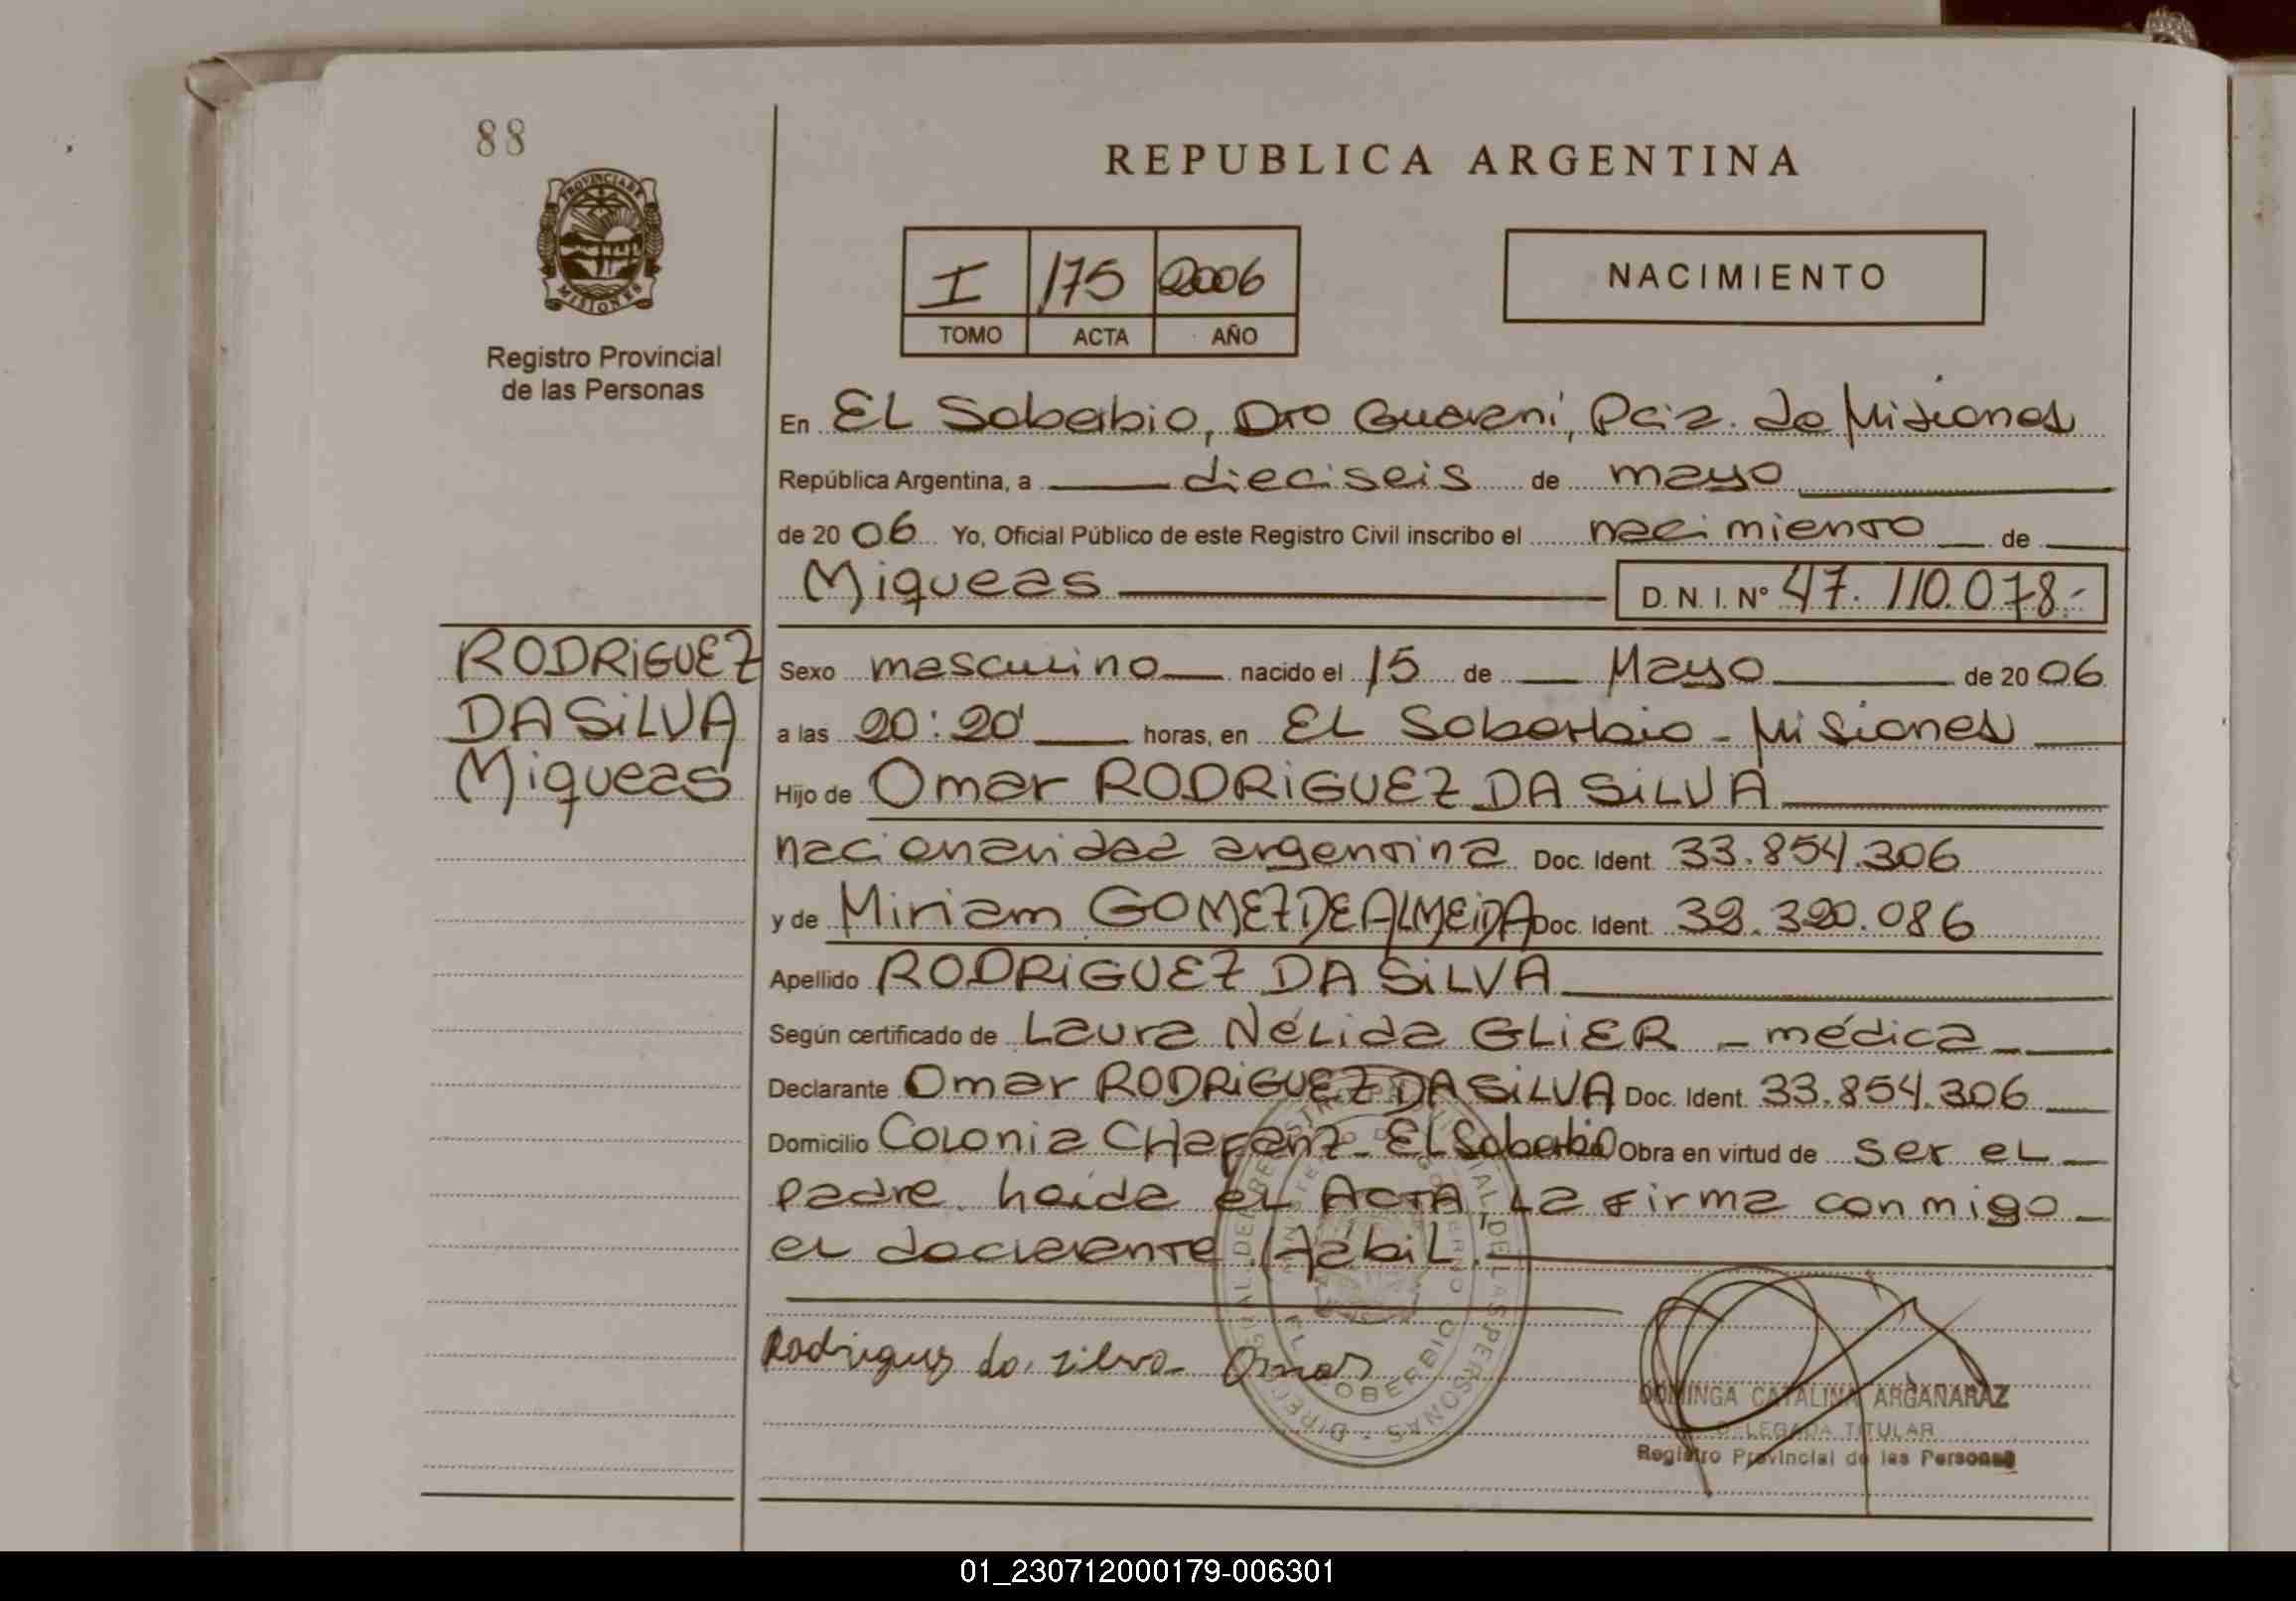 88
REPUBLICA ARGENTINA
PROVINCIA DE
MISIONES
Registro Provincial
de las Personas
I 175 2006
TOMO ACTA AÑO
NACIMIENTO
En EL Soberbio, Dto Guarani, Pcia. de Misiones
República Argentina, a dieciseis de mayo
de 2006 Yo, Oficial Público de este Registro Civil inscribo el nacimiento de
Miqueas D.N.I. Nº 47.110.078.-
RODRIGUEZ
DA SILVA
Miqueas
Sexo masculino nacido el 15 de Mayo de 2006
a las 20:20' horas, en EL Soberbio - Misiones
Hijo de Omar RODRIGUEZ DA SILVA
nacionalidad argentina Doc. Ident. 33.854.306
y de Miriam GOMEZ DE ALMEIDA Doc. Ident. 320.086
Apellido RODRIGUEZ DA SILVA
Según certificado de Laura Nélida GLIER - médica
Declarante Omar RODRIGUEZ DA SILVA Doc. Ident. 33.854.306
Domicilio Colonia - EL Soberbio Obra en virtud de ser el
padre. heida el ACTA, La firma conmigo
el declarante Habil.
Rodriguez da silva Omar
EL SOBERBIO
DOMINGA CATALINA ARGAÑARAZ
DELEGADA TITULAR
Registro Provincial de las Personas
01_230712000179-006301